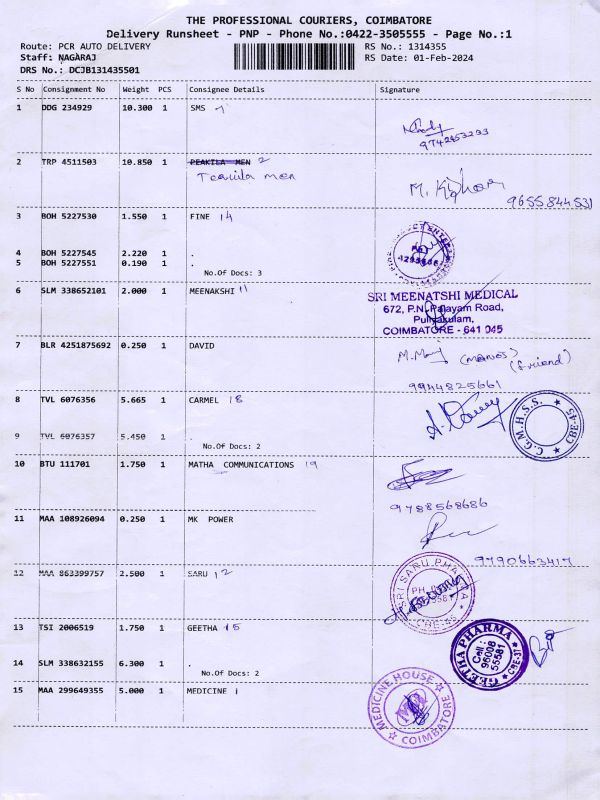 THE PROFESSIONAL COURIERS, COIMBATORE
Delivery Runsheet - PNP - Phone No.:0422-3505555 - Page No.:1
Route: PCR AUTO DELIVERY
RS No.: 1314355
Staff: NAGARAJ
RS Date: 01-Feb-2024
DRS No.: DCJB131435501
S No Consignment No Weight PCS Consignee Details Signature
1 DDG 234929 10.300 1 SMS
9742453233
2 TRP 4511503 10.850 1 PEAKILA MEN 2
Teakila men
M. Kishor 9655844531
3 BOH 5227530 1.550 1 FINE 14
4 BOH 5227545 2.220 1 .
5 BOH 5227551 0.190 1 .
No.Of Docs: 3
6 SLM 338652101 2.000 1 MEENAKSHI 11
SRI MEENATSHI MEDICAL
672, P.N. Palayam Road,
Puliyakulam,
COIMBATORE - 641 045
7 BLR 4251875692 0.250 1 DAVID
M. Manoj (MANOJ) (friend)
9944825661
8 TVL 6076356 5.665 1 CARMEL 18
C.G.M.H.S.S. CBE-45
9 TVL 6076357 5.450 1 .
No.Of Docs: 2
10 BTU 111701 1.750 1 MATHA COMMUNICATIONS 19
9788568686
11 MAA 108926094 0.250 1 MK POWER
9790663417
12 MAA 863399757 2.500 1 SARU 12
SRI SARU PHARMA
CBE-45
13 TSI 2006519 1.750 1 GEETHA 15
GEETHA PHARMA
Cell :
96008
55581
CBE-37
14 SLM 338632155 6.300 1 .
No.Of Docs: 2
15 MAA 299649355 5.000 1 MEDICINE 1
MEDICINE HOUSE
COIMBATORE